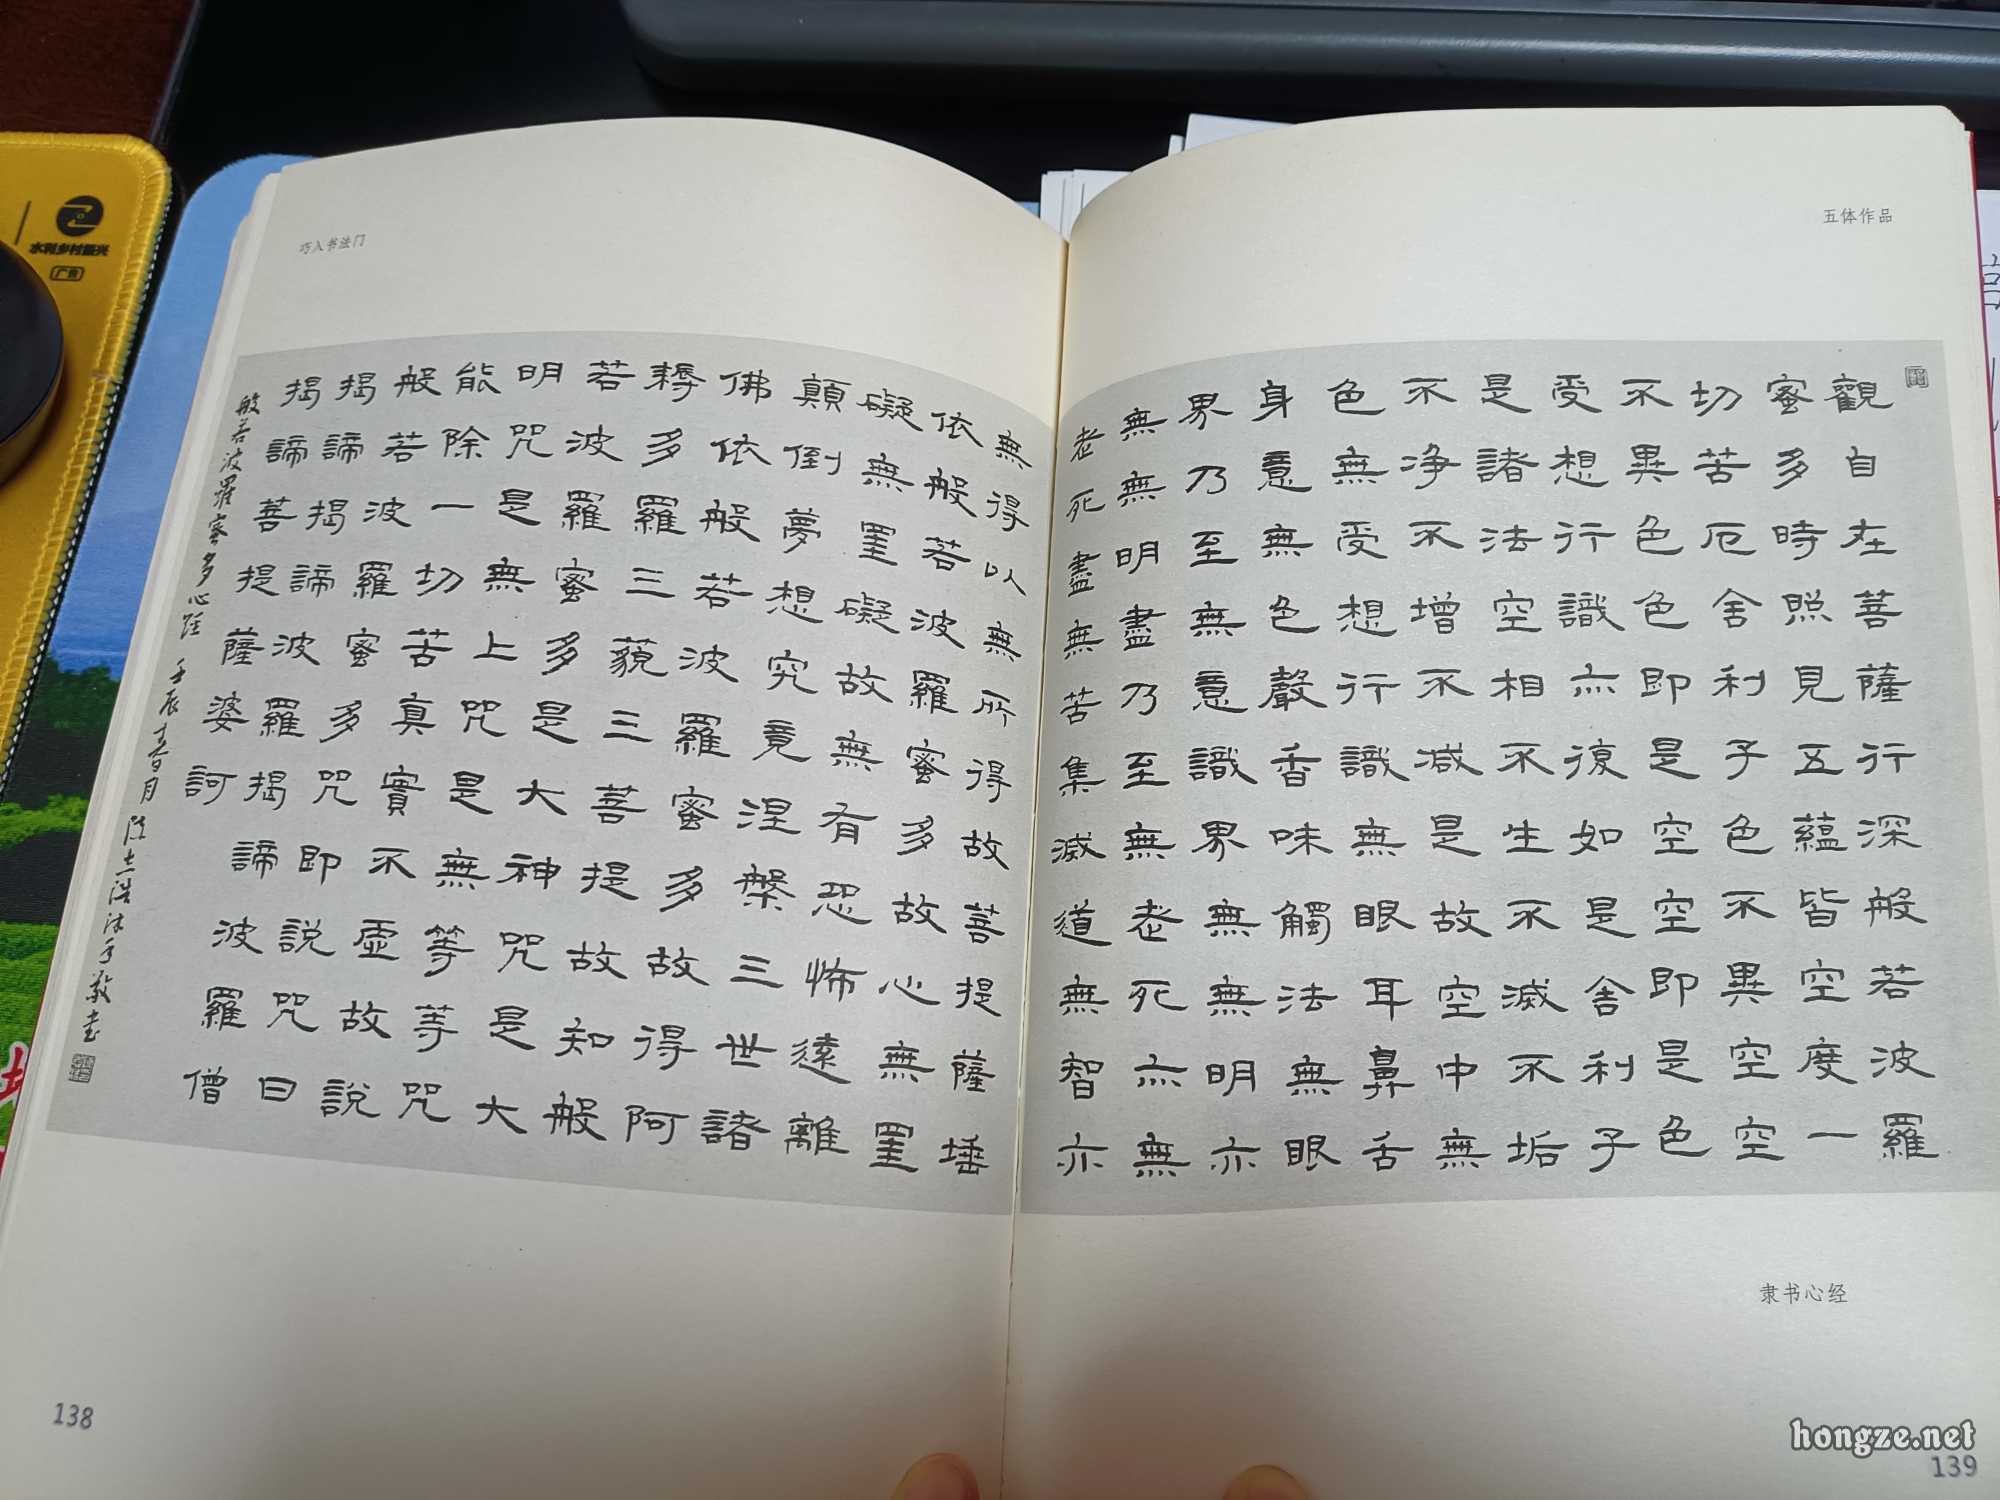 巧入书法门
五体作品
觀自在菩薩行深般若波羅
蜜多時照見五蘊皆空度一
切苦厄舍利子色不異空空
不異色色即是空空即是色
受想行識亦復如是舍利子
是諸法空相不生不滅不垢
不净不增不减是故空中無
色無受想行識無眼耳鼻舌
身意無色聲香味觸法無眼
界乃至無意識界無無明亦
無無明盡乃至無老死亦無
老死盡無苦集滅道無智亦
無得以無所得故菩提薩埵
依般若波羅蜜多故心無罣
礙無罣礙故無有恐怖遠離
顛倒夢想究竟涅槃三世諸
佛依般若波羅蜜多故得阿
耨多羅三藐三菩提故知般
若波羅蜜多是大神咒是大
明咒是無上咒是無等等咒
能除一切苦真實不虛故說
般若波羅蜜多咒即說咒曰
揭諦揭諦波羅揭諦波羅僧
揭諦菩提薩婆訶
般若波羅蜜多心經 壬辰春月 陈志浩沐手敬書
隶书心经
138
139
水利乡村振兴
广告
hongze.net